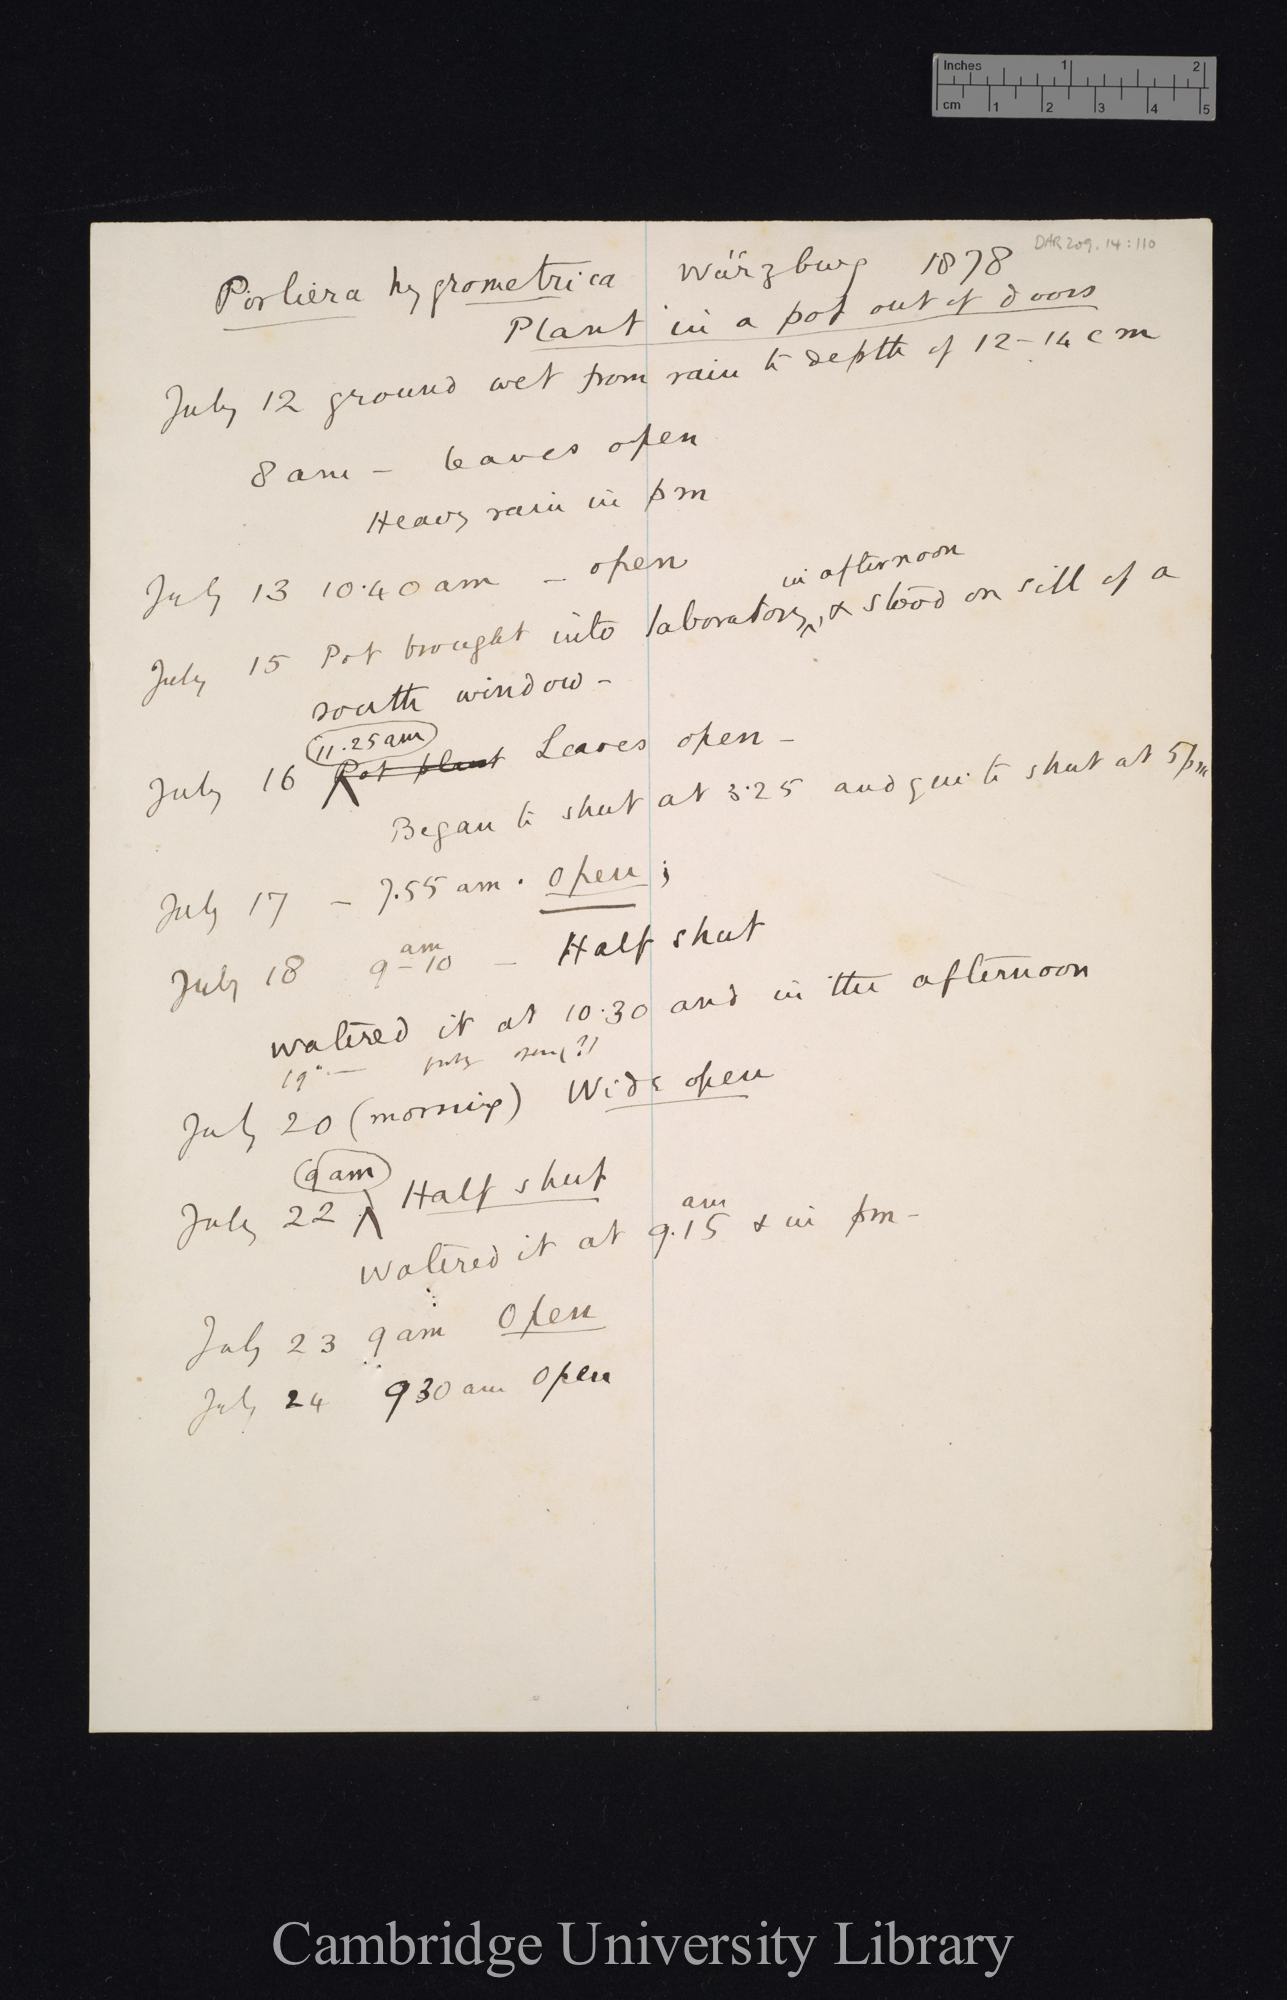 Inches 1 2
cm 1 2 3 4 5
DAR 209.14:110
Porliera hygrometrica Würzburg 1878
Plant in a pot out of doors
July 12 ground wet from rain to depth of 12-14 cm
8 am - leaves open
Heavy rain in pm
July 13 10.40 am - open
in afternoon
July 15 Pot brought into laboratory, & stood on sill of a
south window -
11.25 am
July 16 Pot plant Leaves open -
Began to shut at 3.25 and quite shut at 5 pm
July 17 - 7.55 am. open;
am
July 18 9-10 - Half shut
watered it at 10.30 and in the afternoon
19
July 20 (morning) Wide open
9 am
July 22 Half shut
am
watered it at 9.15 & in pm -
July 23 9 am Open
July 24 930 am open
Cambridge University Library